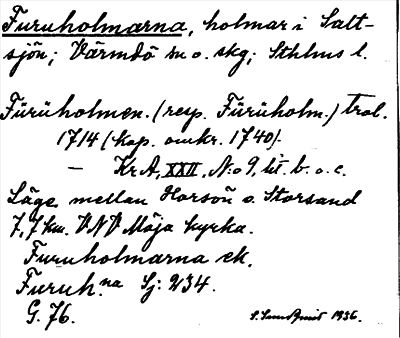 Furuholmarna, holmar i Salt-
sjön; Värmdö sn o. skg; Sthlms l.
Fürüholmen. (resp. Fürüholm.) trol.
1714 (kop. omkr. 1740).
— Kr A, XXII, N:o 9, lit. b. o. c.
Läge mellan Horsön o. Storsand
7,7 km. VNV Möja kyrka.
Furuholmarna ek.
Furuh.na Sj: 234.
G. 76.
1936.